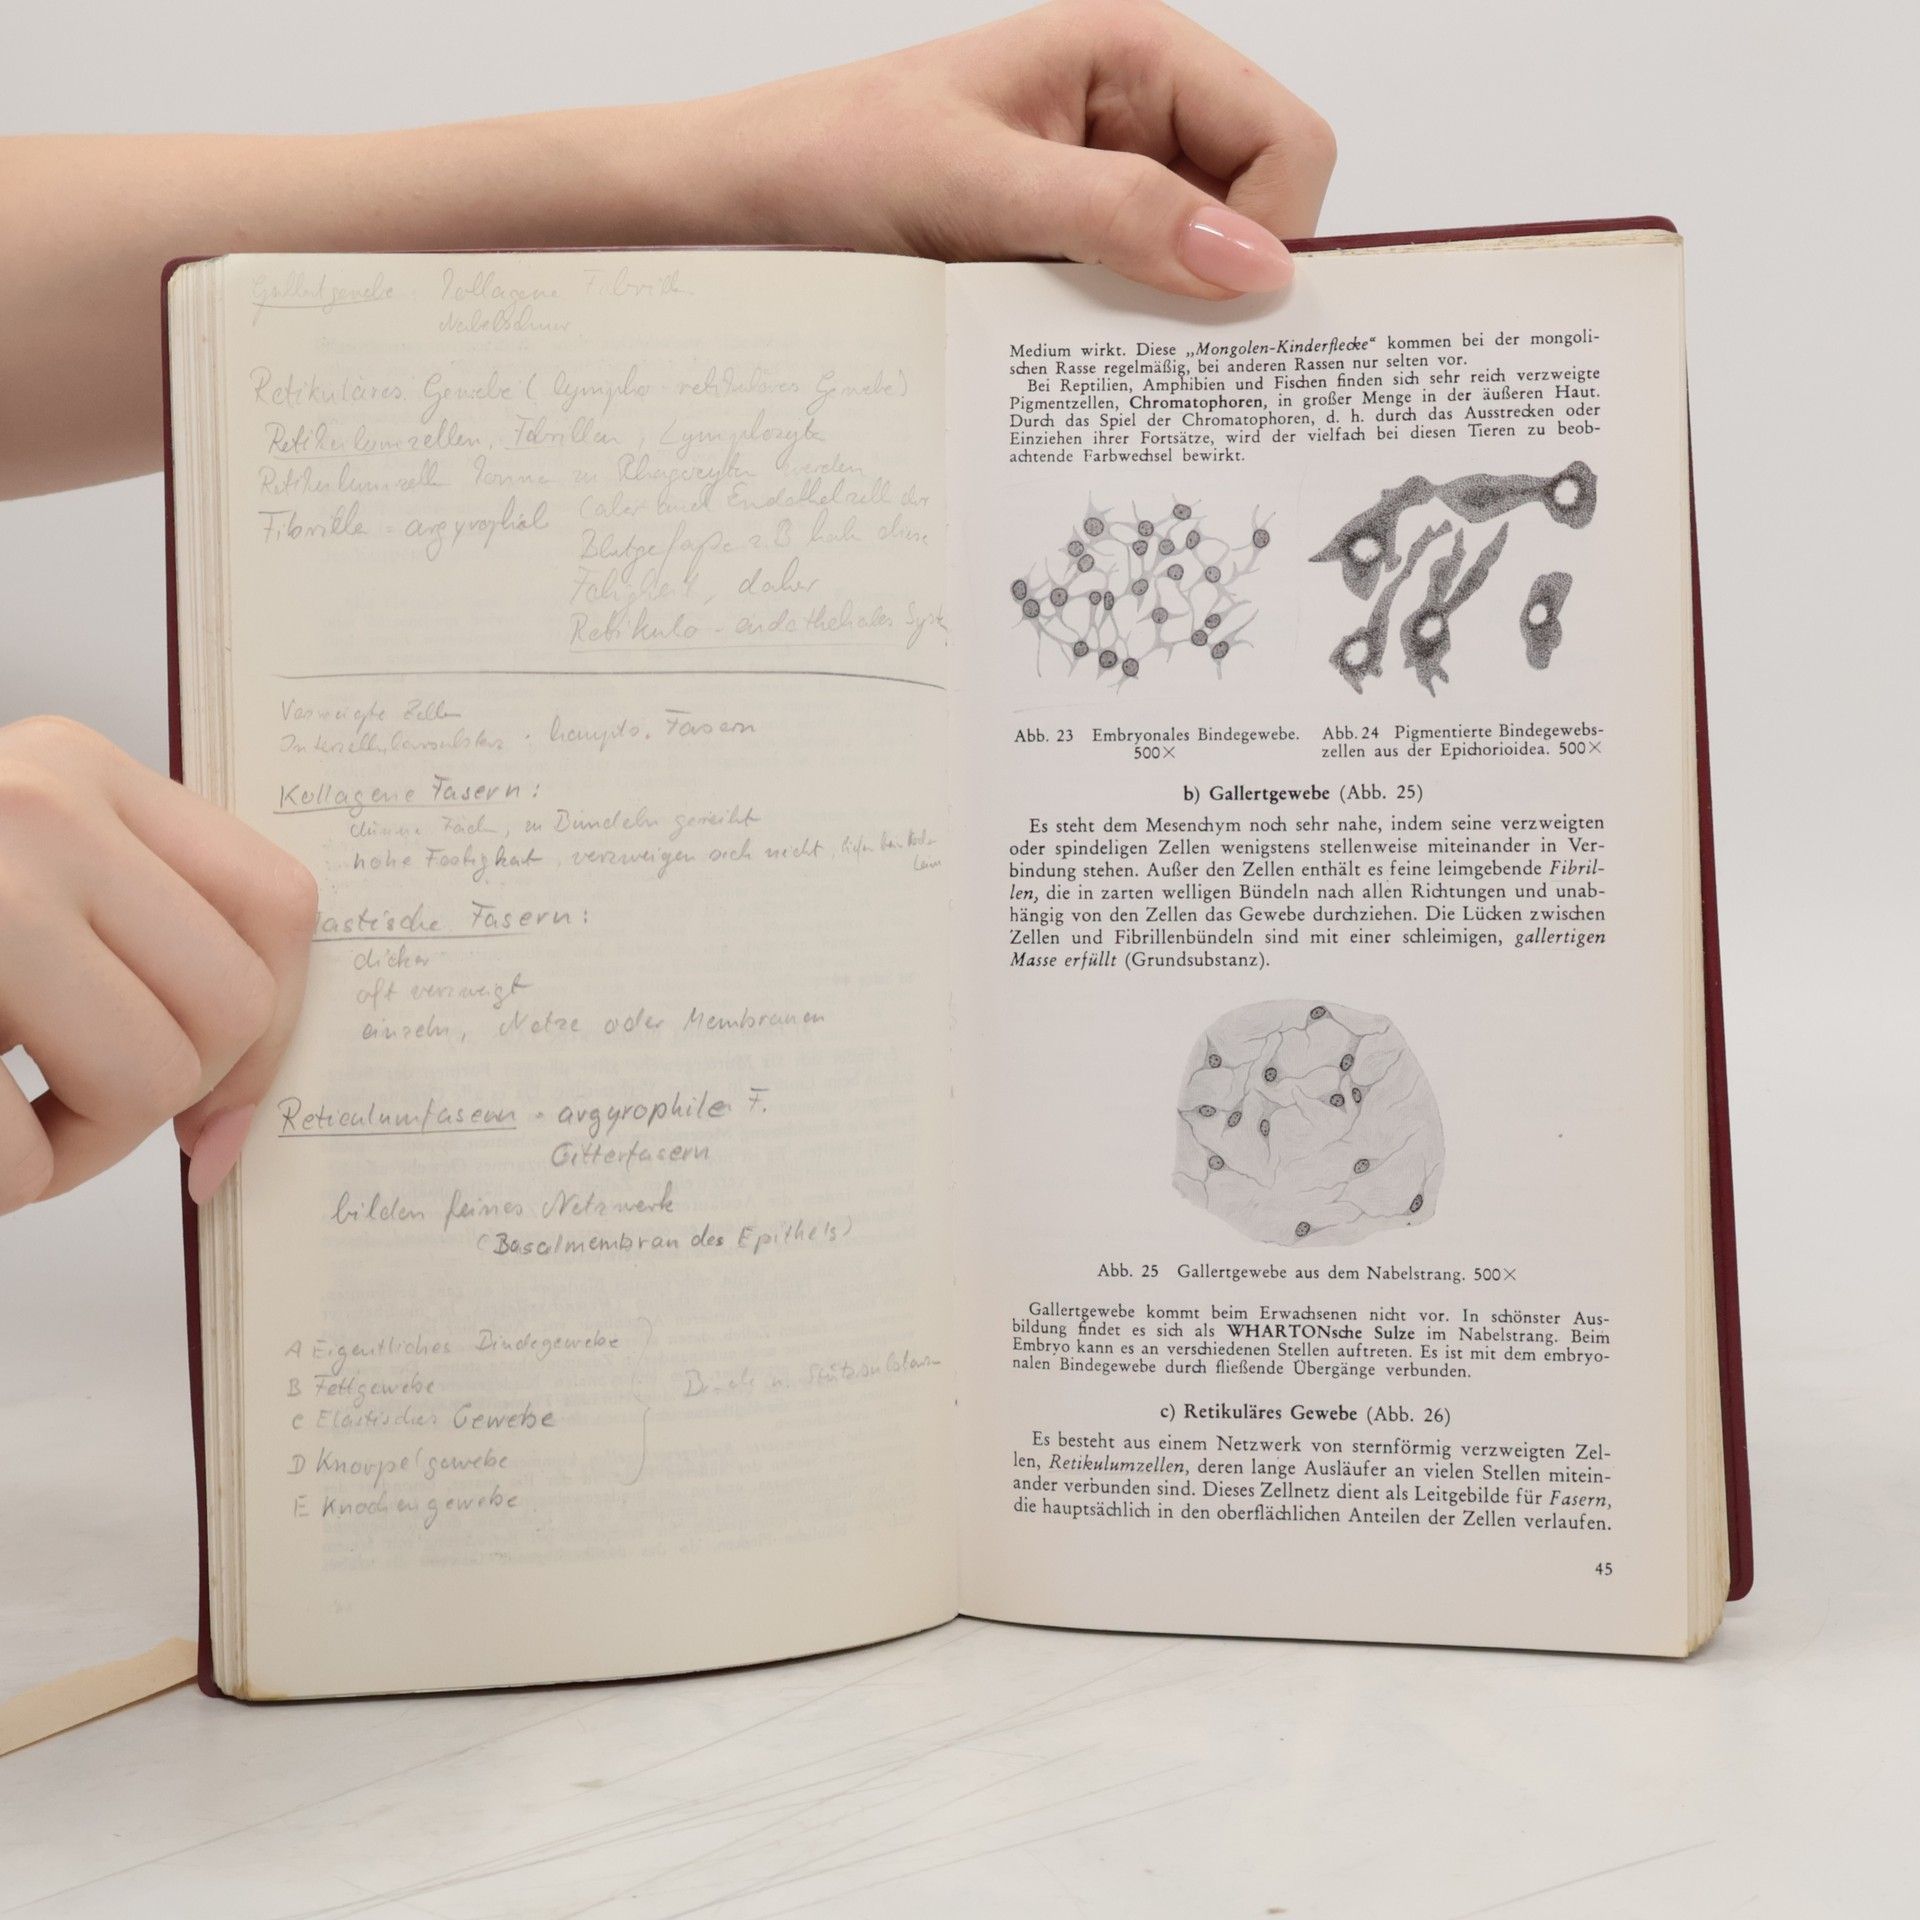 Kollagene Fibrillen
Nabelschnur
Retikuläres Gewebe (lympho-retikuläres Gewebe)
Retikulumzellen, Fibrillen, Lymphozyten
Retikulumzellen können zu Phagozyten werden
(aber auch Endothelzellen der
Fibrillen = argyrophil
Blutgefäße z.B. haben diese
Fähigkeit, daher
Retikulo-endotheliales Syst.
Verzweigte Zellen
Interzellularsubstanz : haupts. Fasern
Kollagene Fasern:
dünne Fäden, zu Bündeln gereiht
hohe Festigkeit, verzweigen sich nicht,
lastische Fasern:
dicker
oft verzweigt
einzeln, Netze oder Membranen
Reticulumfasern = argyrophile F.
Gitterfasern
bilden feines Netzwerk
(Basalmembran des Epithels)
A Eigentliches Bindegewebe
B Fettgewebe
C Elastisches Gewebe
D Knorpelgewebe
E Knochengewebe
Medium wirkt. Diese „Mongolen-Kinderflecke“ kommen bei der mongoli-
schen Rasse regelmäßig, bei anderen Rassen nur selten vor.
Bei Reptilien, Amphibien und Fischen finden sich sehr reich verzweigte
Pigmentzellen, Chromatophoren, in großer Menge in der äußeren Haut.
Durch das Spiel der Chromatophoren, d. h. durch das Ausstrecken oder
Einziehen ihrer Fortsätze, wird der vielfach bei diesen Tieren zu beob-
achtende Farbwechsel bewirkt.
Abb. 23 Embryonales Bindegewebe.
500×
Abb. 24 Pigmentierte Bindegewebs-
zellen aus der Epichorioidea. 500×
b) Gallertgewebe (Abb. 25)
Es steht dem Mesenchym noch sehr nahe, indem seine verzweigten
oder spindeligen Zellen wenigstens stellenweise miteinander in Ver-
bindung stehen. Außer den Zellen enthält es feine leimgebende Fibril-
len, die in zarten welligen Bündeln nach allen Richtungen und unab-
hängig von den Zellen das Gewebe durchziehen. Die Lücken zwischen
Zellen und Fibrillenbündeln sind mit einer schleimigen, gallertigen
Masse erfüllt (Grundsubstanz).
Abb. 25 Gallertgewebe aus dem Nabelstrang. 500×
Gallertgewebe kommt beim Erwachsenen nicht vor. In schönster Aus-
bildung findet es sich als WHARTONsche Sulze im Nabelstrang. Beim
Embryo kann es an verschiedenen Stellen auftreten. Es ist mit dem embryo-
nalen Bindegewebe durch fließende Übergänge verbunden.
c) Retikuläres Gewebe (Abb. 26)
Es besteht aus einem Netzwerk von sternförmig verzweigten Zel-
len, Retikulumzellen, deren lange Ausläufer an vielen Stellen mitein-
ander verbunden sind. Dieses Zellnetz dient als Leitgebilde für Fasern,
die hauptsächlich in den oberflächlichen Anteilen der Zellen verlaufen.
45